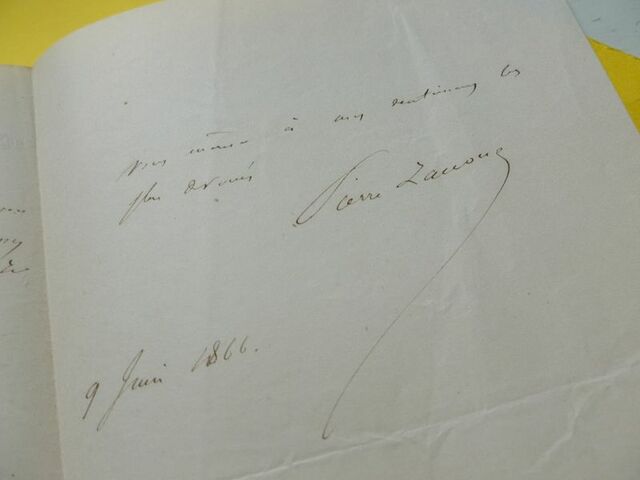 à mes sentiments les
plus dévoués
Pierre Zaccone
9 Juin 1866.